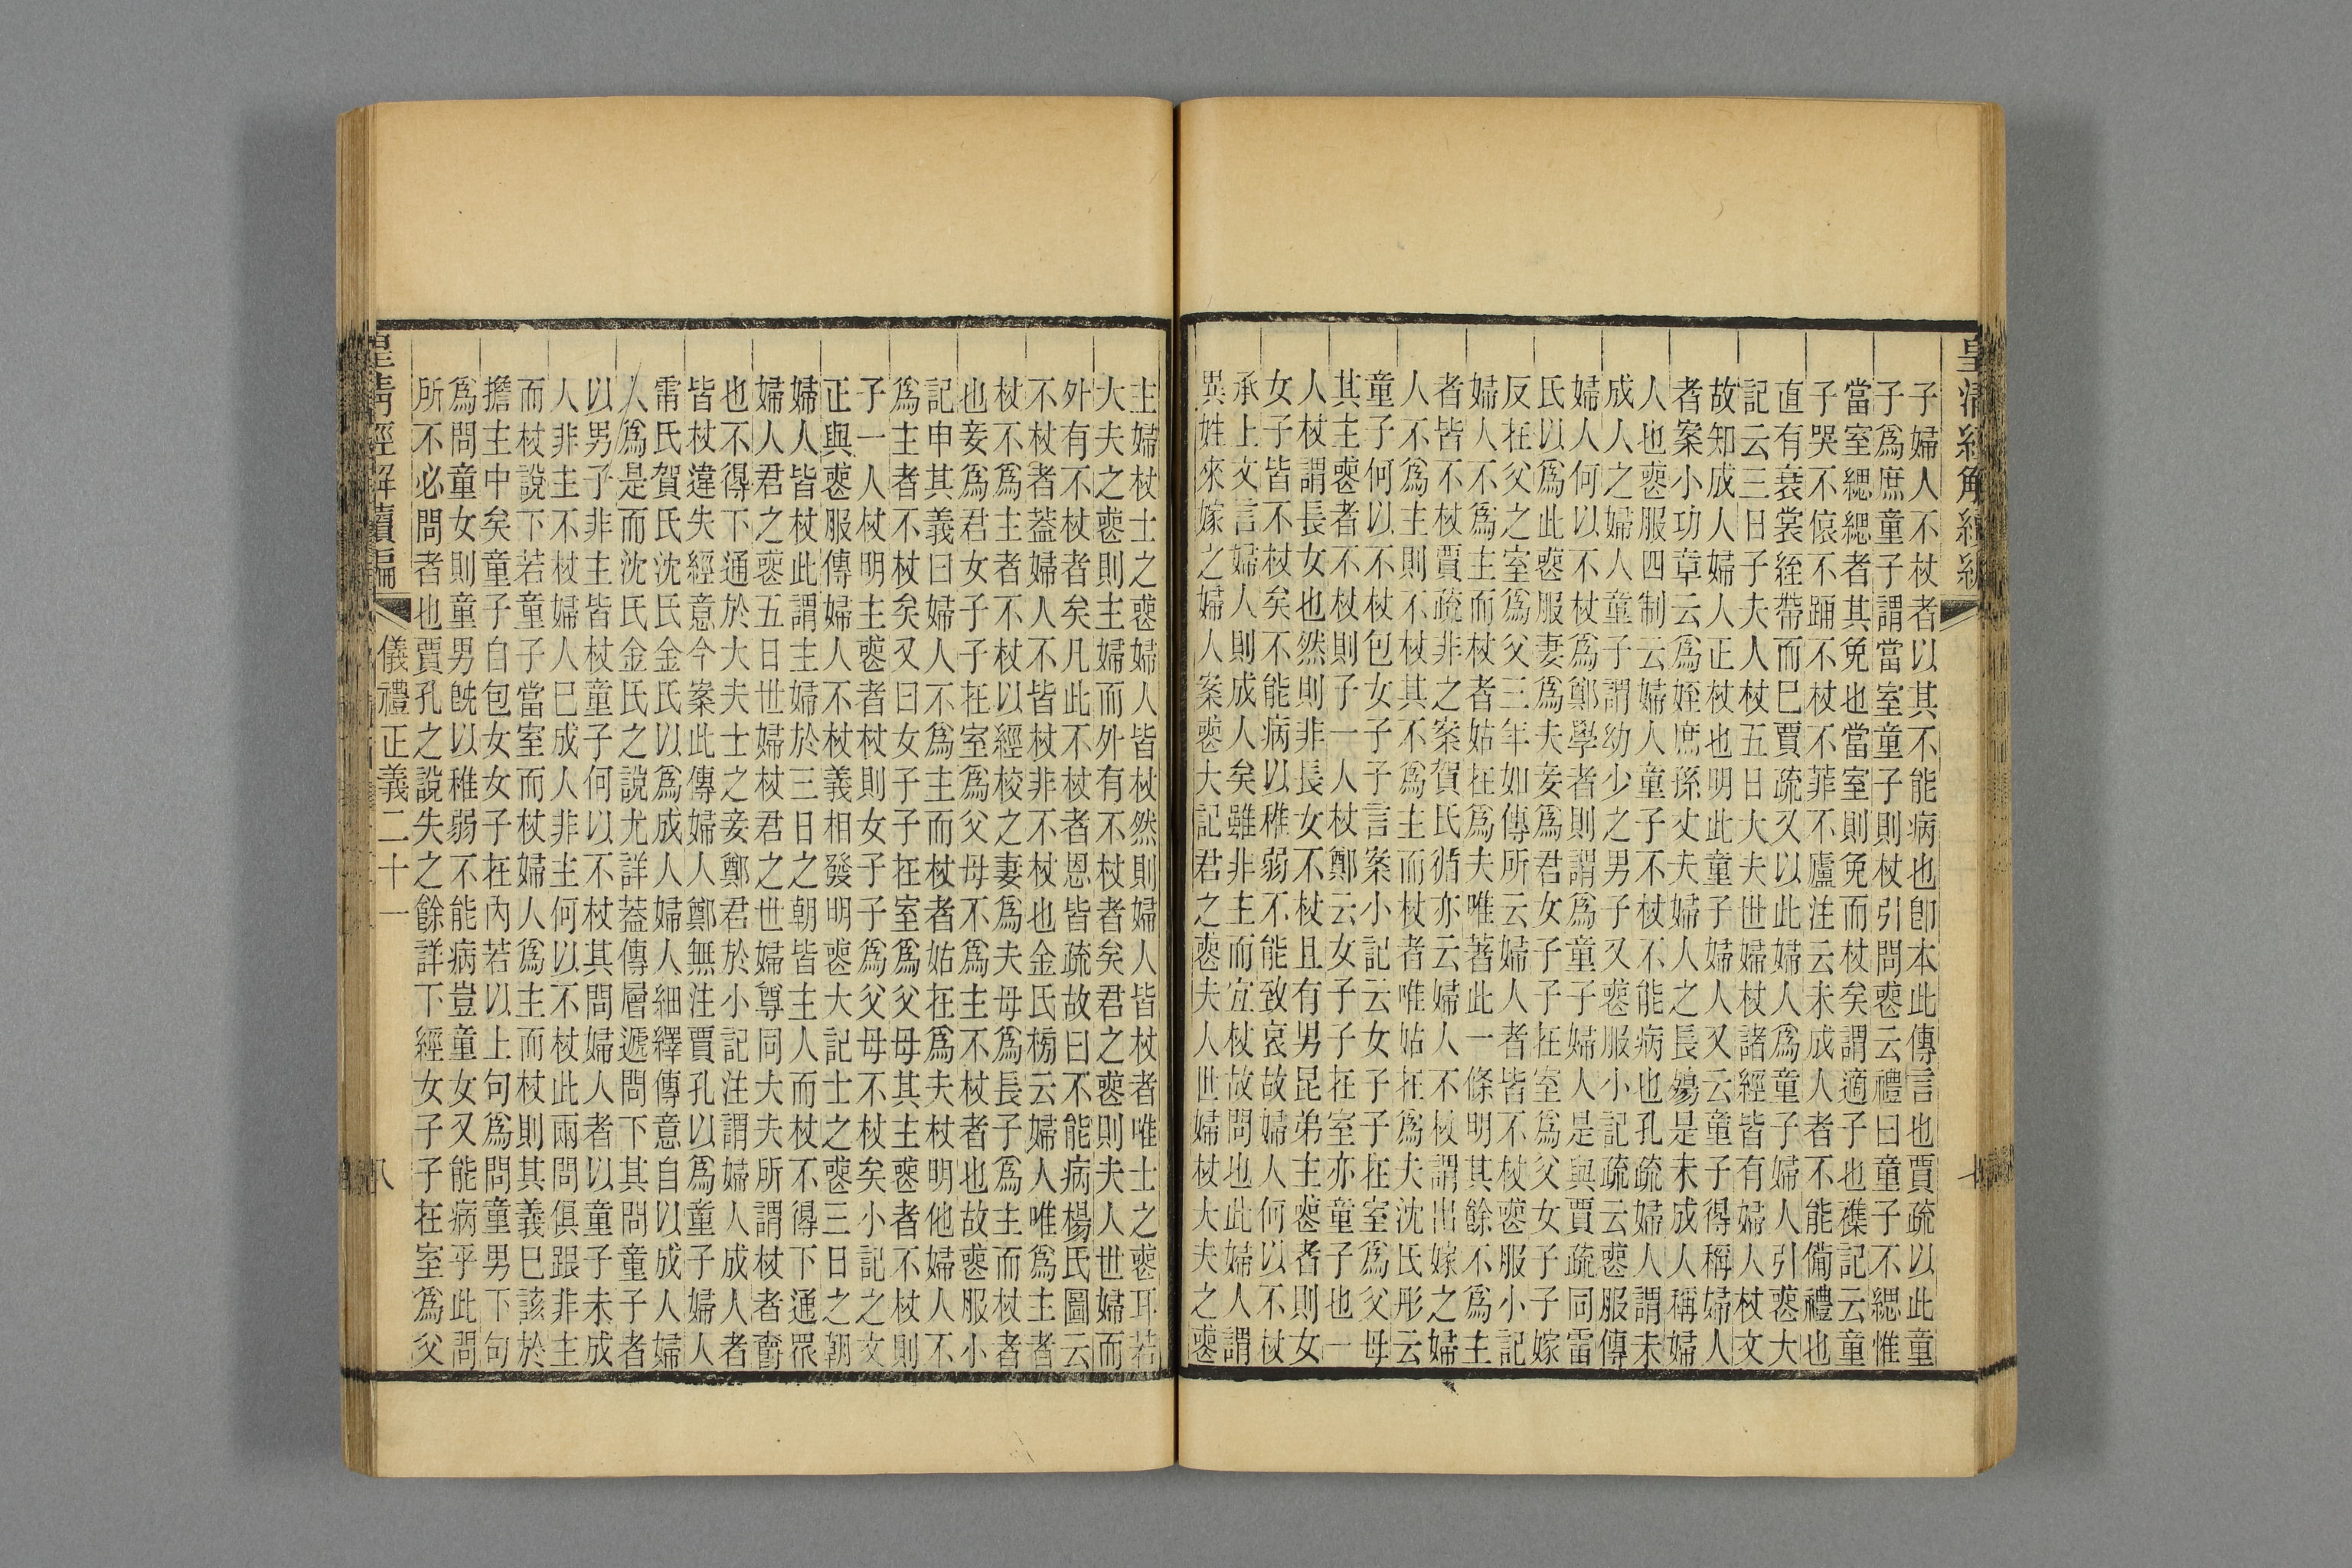 皇清經解續編
子婦人不杖者以其不能病也卽本此傳言也賈疏以此童
子爲庶童子謂當室童子則杖引問喪云禮曰童子不緦惟
當室緦緦者其免也當室則免而杖矣謂適子也襍記云童
子哭不偯不踊不杖不菲不廬注云未成人者不能備禮也
直有衰裳絰帶而巳賈疏又以此婦人爲童子婦人引喪大
記云三日子夫人杖五日大夫世婦杖諸經皆有婦人杖文
故知成人婦人正杖也明此童子婦人又云童子得稱婦人
者案小功章云爲姪庶孫丈夫婦人之長殤是未成人稱婦
人也喪服四制云婦人童子不杖不能病也孔疏婦人謂未
成人之婦人童子謂幼少之男子又喪服小記疏云喪服傳
婦人何以不杖爲鄭學者則謂爲童子婦人是與賈疏同雷
氏以爲此喪服妻爲夫妾爲君女子子在室爲父女子子嫁
反在父之室爲父三年如傳所云婦人者皆不杖喪服小記
婦人不爲主而杖者姑在爲夫唯著此一條明其餘不爲主
者皆不杖賈疏非之案賀氏循亦云婦人不杖謂出嫁之婦
人不爲主則不杖其不爲主而杖者唯姑在爲夫沈氏彤云
童子何以不杖包女子子言案小記云女子子在室爲父母
其主喪者不杖則子一人杖鄭云女子子在室亦童子也一
人杖謂長女也然則非長女不杖且有男昆弟主喪者則女
女子皆不杖矣不能病以稚弱不能致哀故婦人何以不杖
承上文言婦人則成人矣雖非主而宜杖故問也此婦人謂
異姓來嫁之婦人案喪大記君之喪夫人世婦杖大夫之喪
主婦杖士之喪婦人皆杖然則婦人皆杖者唯士之喪耳若
大夫之喪則主婦而外有不杖者矣君之喪則夫人世婦而
外有不杖者矣凡此不杖者恩皆疏故曰不能病楊氏圖云
不杖者葢婦人不皆杖非不杖也金氏榜云婦人唯爲主者
杖不爲主者不杖以經校之妻爲夫母爲長子爲主而杖者
也妾爲君女子子在室爲父母不爲主不杖者也故喪服小
記申其義曰婦人不爲主而杖者姑在爲夫杖者明他婦人不
爲主者不杖矣又曰女子子在室爲父母其主喪者不杖則
子一人杖明主喪者杖則女子子爲父母不杖矣小記之文
正與喪服傳婦人不杖義相發明喪大記士之喪三日之朝
婦人皆杖此謂主婦於三日之朝皆主人而杖不得下通眾
婦人君之喪五日世婦杖君之世婦尊同大夫所謂杖者爵
也不得下通於大夫士之妾鄭君於小記注謂婦人成人者
皆杖違失經意今案此傳婦人鄭無注賈孔以爲童子婦人
雷氏賀氏沈氏金氏以爲成人婦人細繹傳意自以成人婦
人爲是而沈氏金氏之說尤詳葢傳層遞問下其問童子者
以男子非主皆杖童子何以不杖其問婦人者以童子未成
人非主不杖婦人巳成人非主何以不杖此兩問俱跟非主
而杖說下若童子當室而杖婦人爲主而杖則其義巳該於
擔主中矣童子自包女女子在內若以上句爲問童男下句
爲問童女則童男旣以稚弱不能病豈童女又能病乎此問
所不必問者也賈孔之說失之餘詳下經女子子在室爲父
皇清經解續編
儀禮正義二十一
八